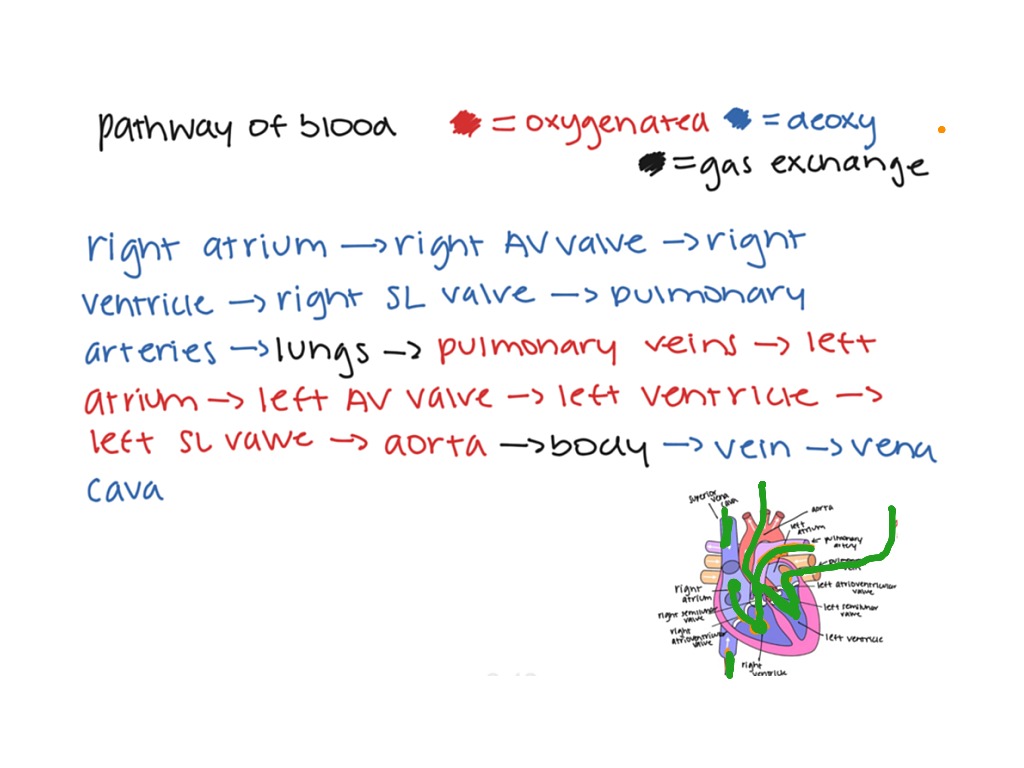 pathway of blood = oxygenated = deoxy
= gas exchange
right atrium → right AV valve → right
ventricle → right SL valve → pulmonary
arteries → lungs → pulmonary veins → left
atrium → left AV valve → left ventricle →
left SL valve → aorta → body → vein → vena
cava
superior
vena
cava
aorta
left
atrium
pulmonary
artery
left atrioventricular
valve
left semilunar
valve
left ventricle
right
atrium
right semilunar
valve
right
atrioventricular
valve
right
ventricle